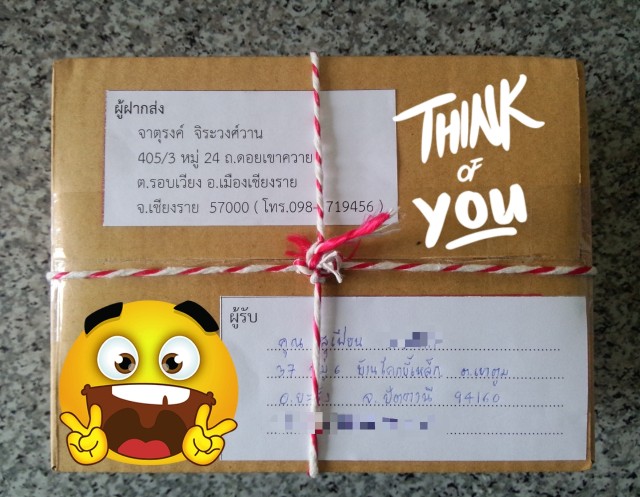 ผู้ฝากส่ง
จาตุรงค์ จิระวงศ์วาน
405/3 หมู่ 24 ถ.ดอยเขาควาย
ต.รอบเวียง อ.เมืองเชียงราย
จ.เชียงราย 57000 ( โทร.098- 719456 )
THINK
OF
YOU
ผู้รับ
คุณ
37 6 บ้านโคกขี้เหล็ก ต.เขาตูม
จ.ปัตตานี 94160